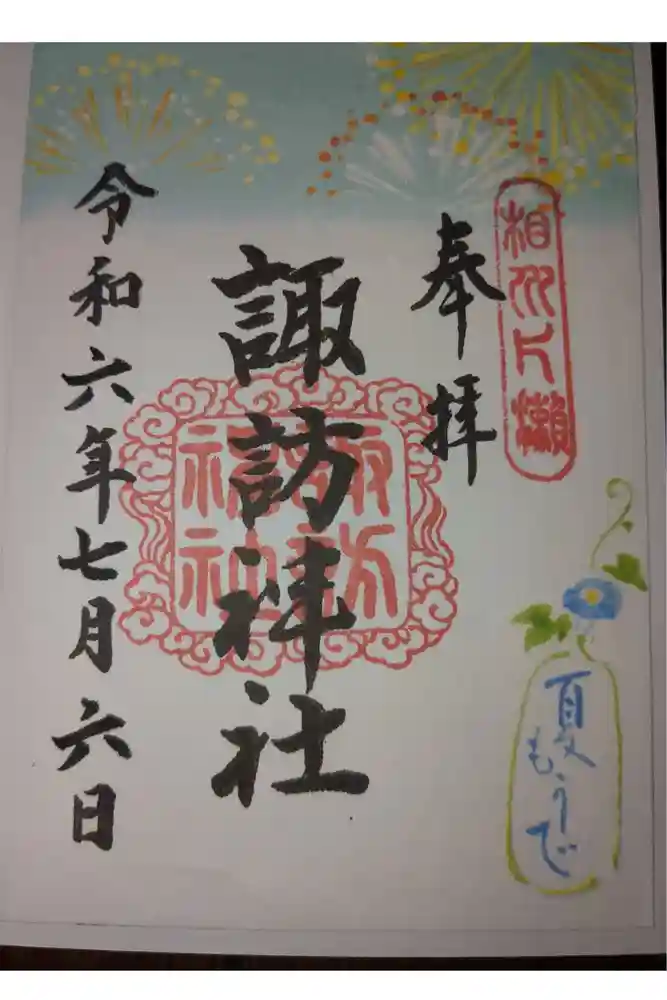 相州片瀬
奉拝
諏訪神社
令和六年七月六日
夏
もうで